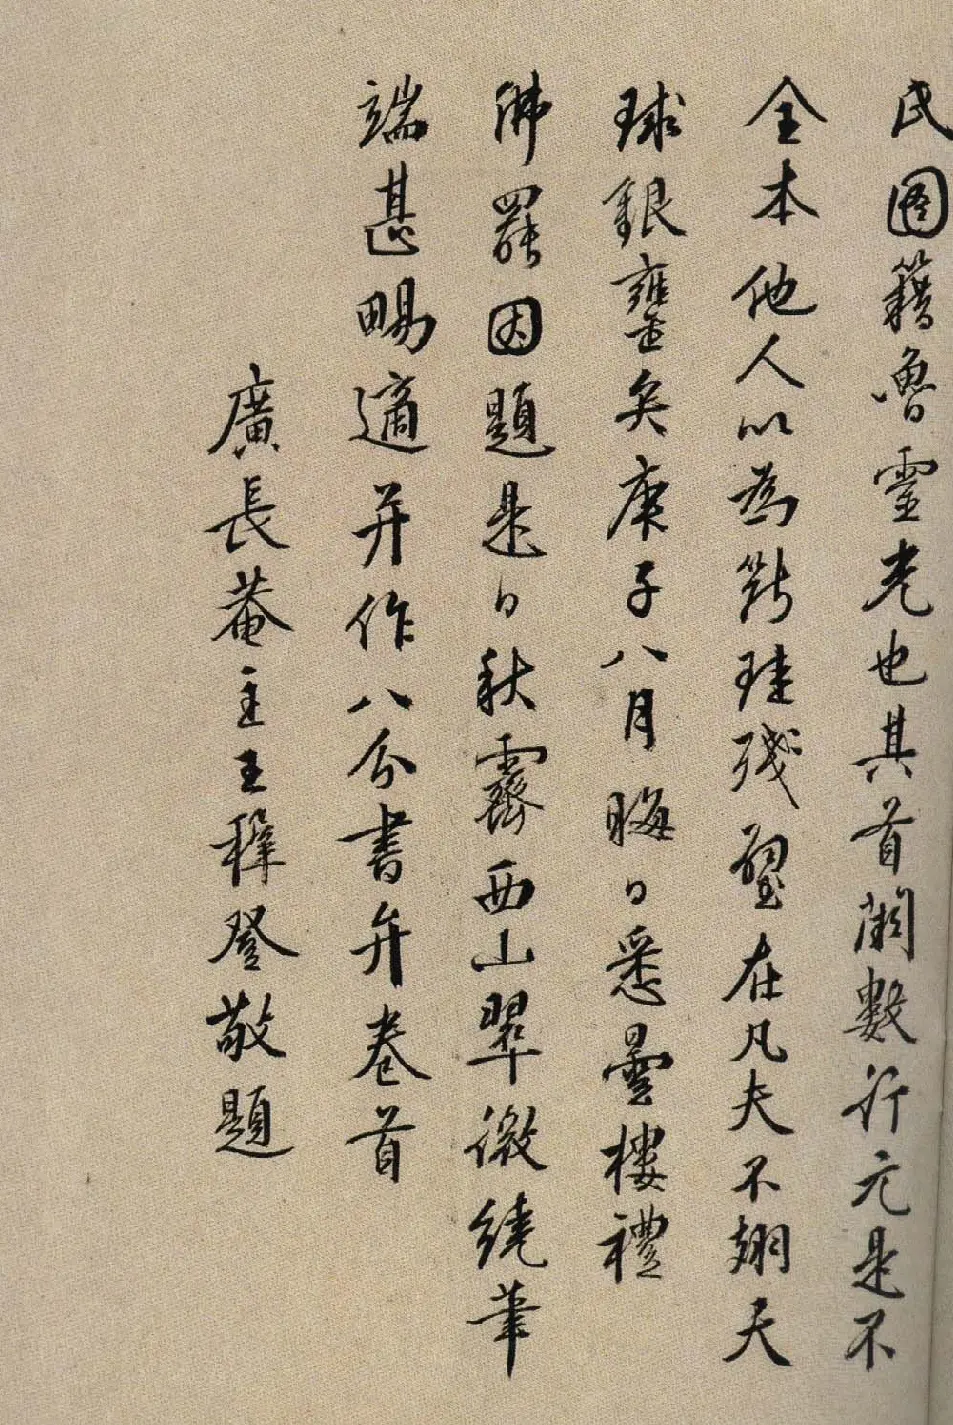 氏圖籍魯靈光也其首闕數行元是不
全本他人以為斷珪殘璧在凡夫不翅天
球銀甕矣庚子八月晦日悉曇樓禮
佛罷因題是日秋霽西山翠微繞筆
端甚賜適并作八分書弁卷首
廣長菴主王穉登敬題